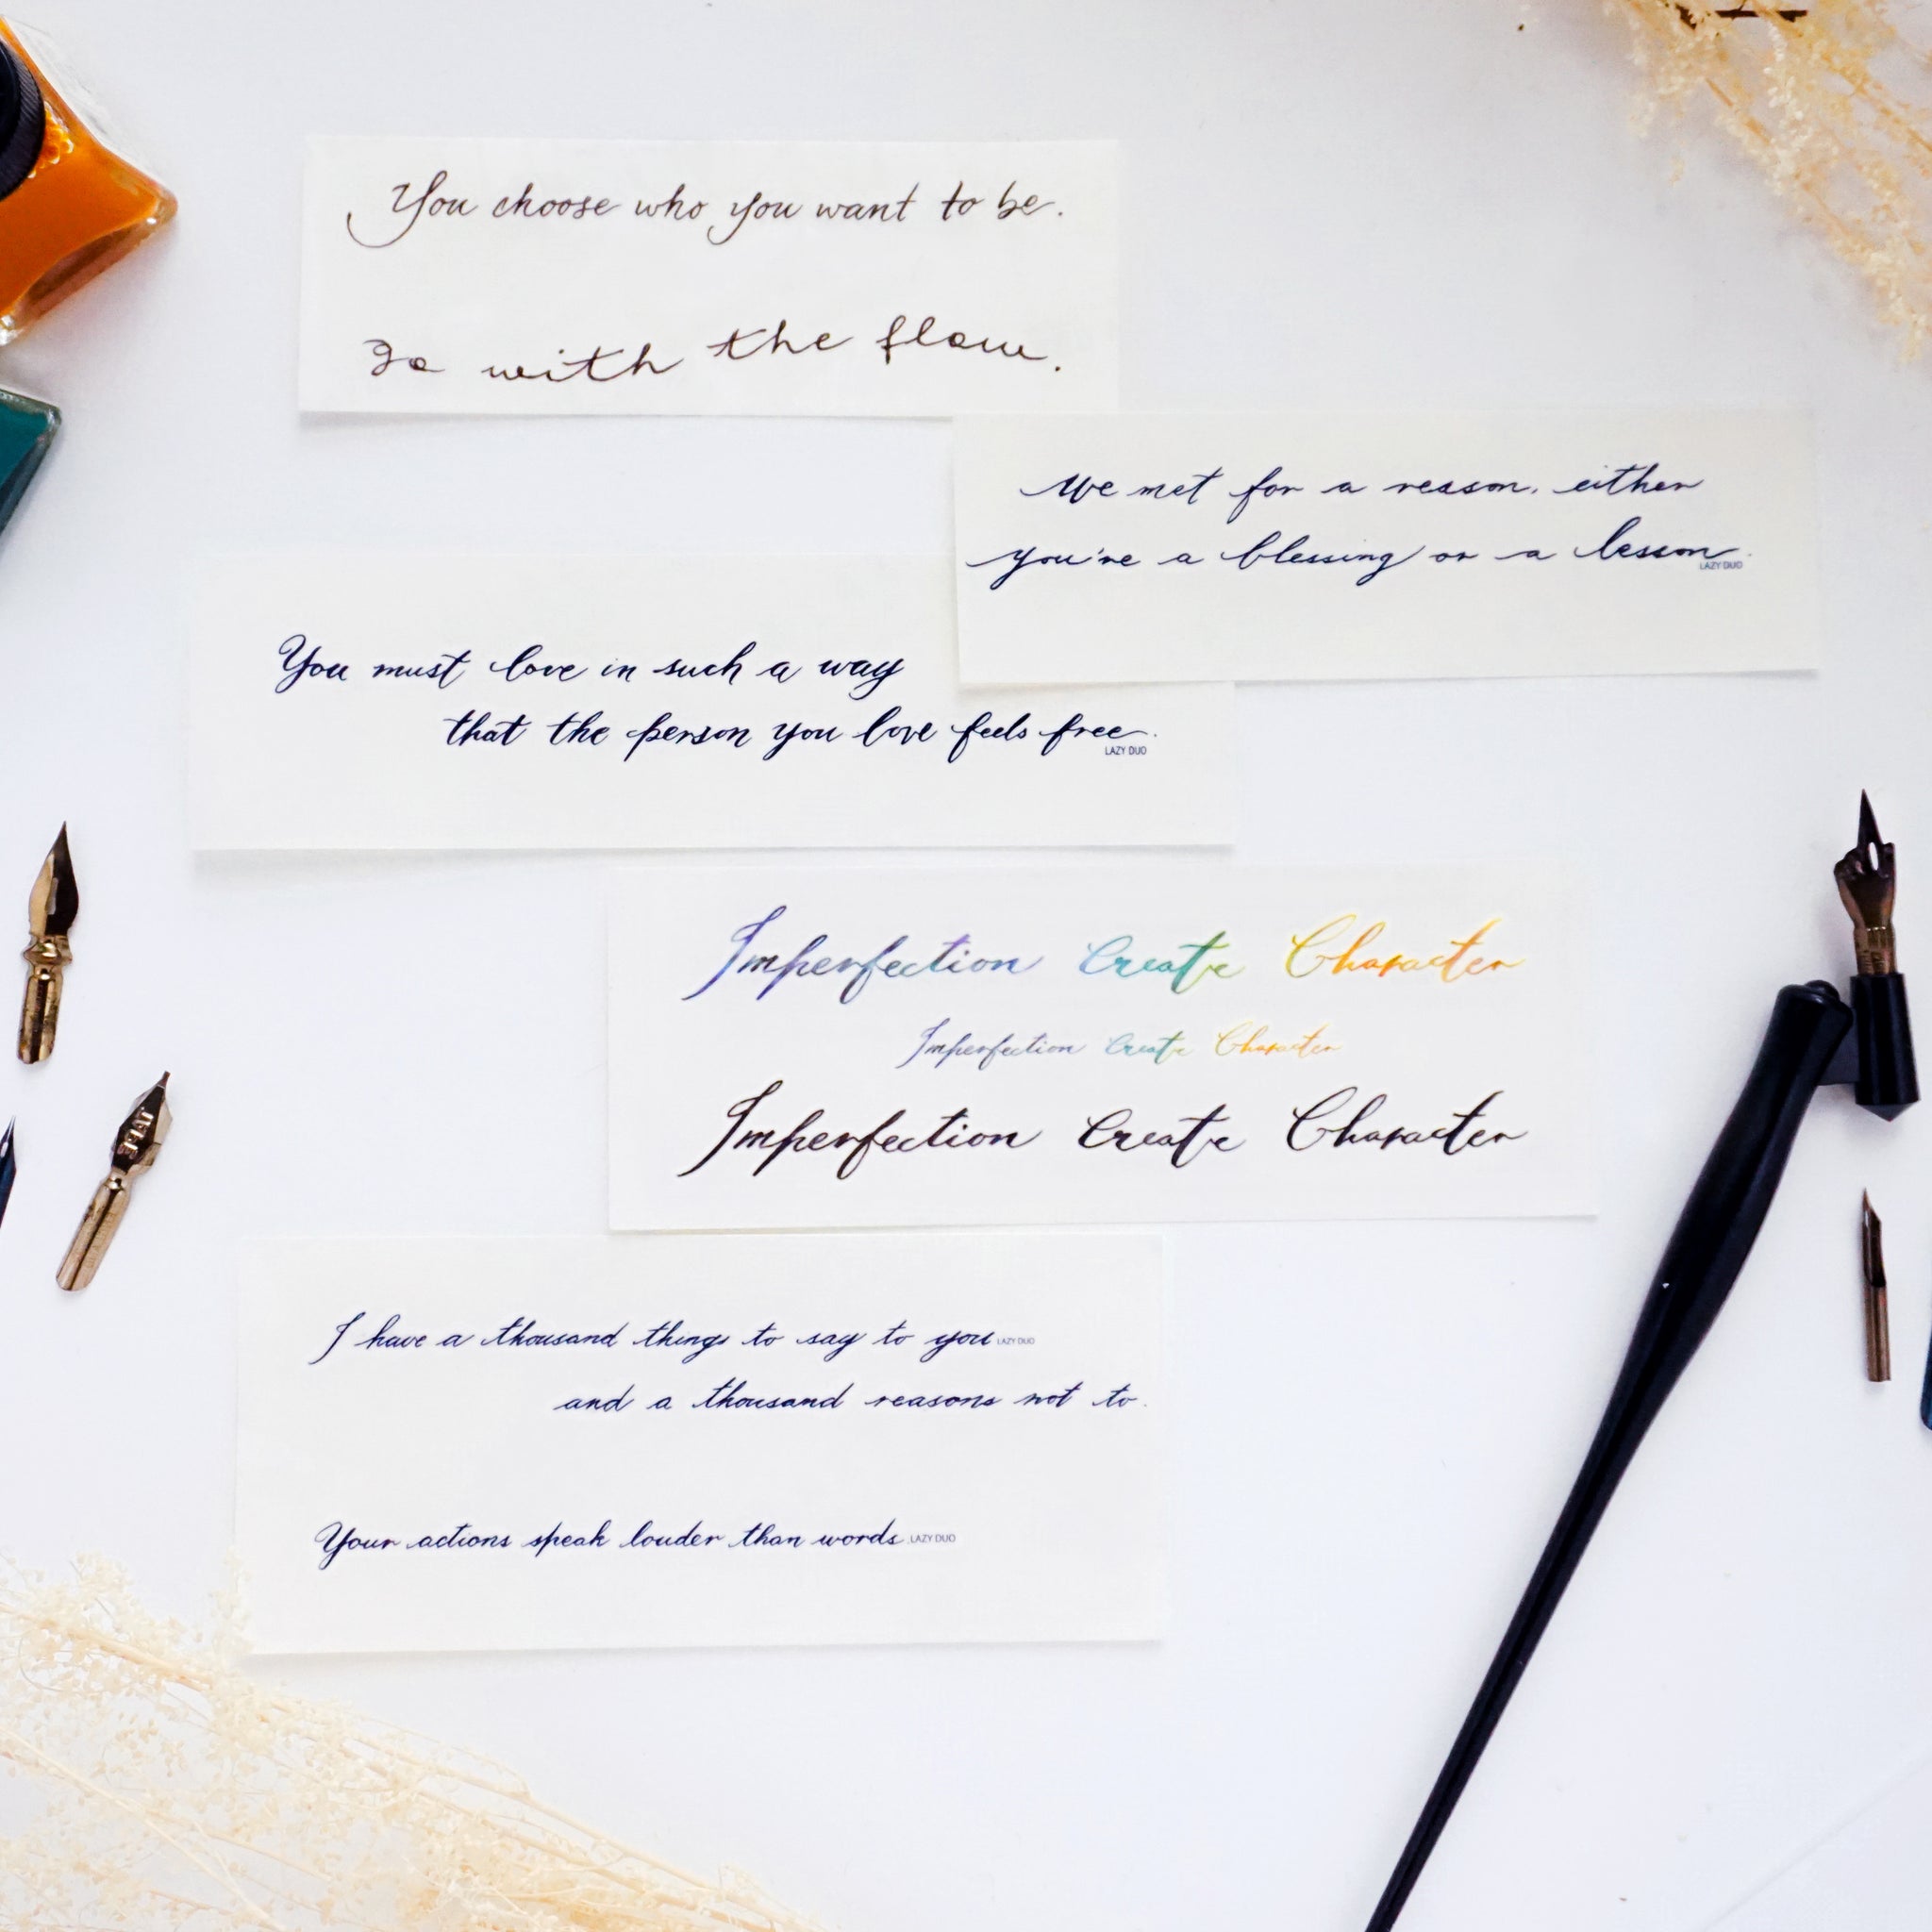 You choose who you want to be.
Go with the flow.
We met for a reason, either
you're a blessing or a lesson.
LAZY DUO
You must love in such a way
that the person you love feels free.
LAZY DUO
Imperfection Create Character
Imperfection Create Character
Imperfection Create Character
I have a thousand things to say to you LAZY DUO
and a thousand reasons not to.
Your actions speak louder than words. LAZY DUO